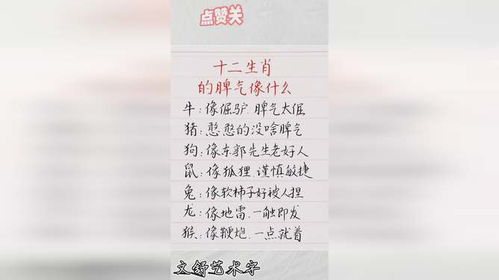 点赞关
十二生肖
的脾气像什么
牛:像倔驴.脾气太倔
猪:憨憨的没啥脾气
狗:像东郭先生老好人
鼠:像狐狸.谨慎敏捷
兔:像软柿子好被人捏
龙:像地雷.一触即发
猴:像鞭炮.一点就着
文舒艺术字